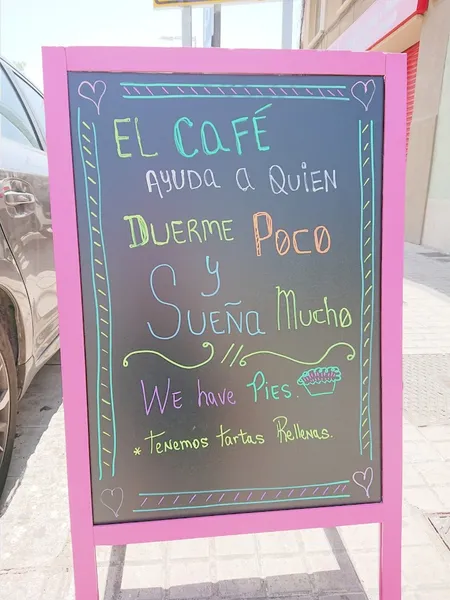 EL CAFÉ
AYUDA A QUIEN
DUERME POCO
Y
SUEÑA MUCHO
WE have PIES.
* TENEMOS tartas Rellenas.